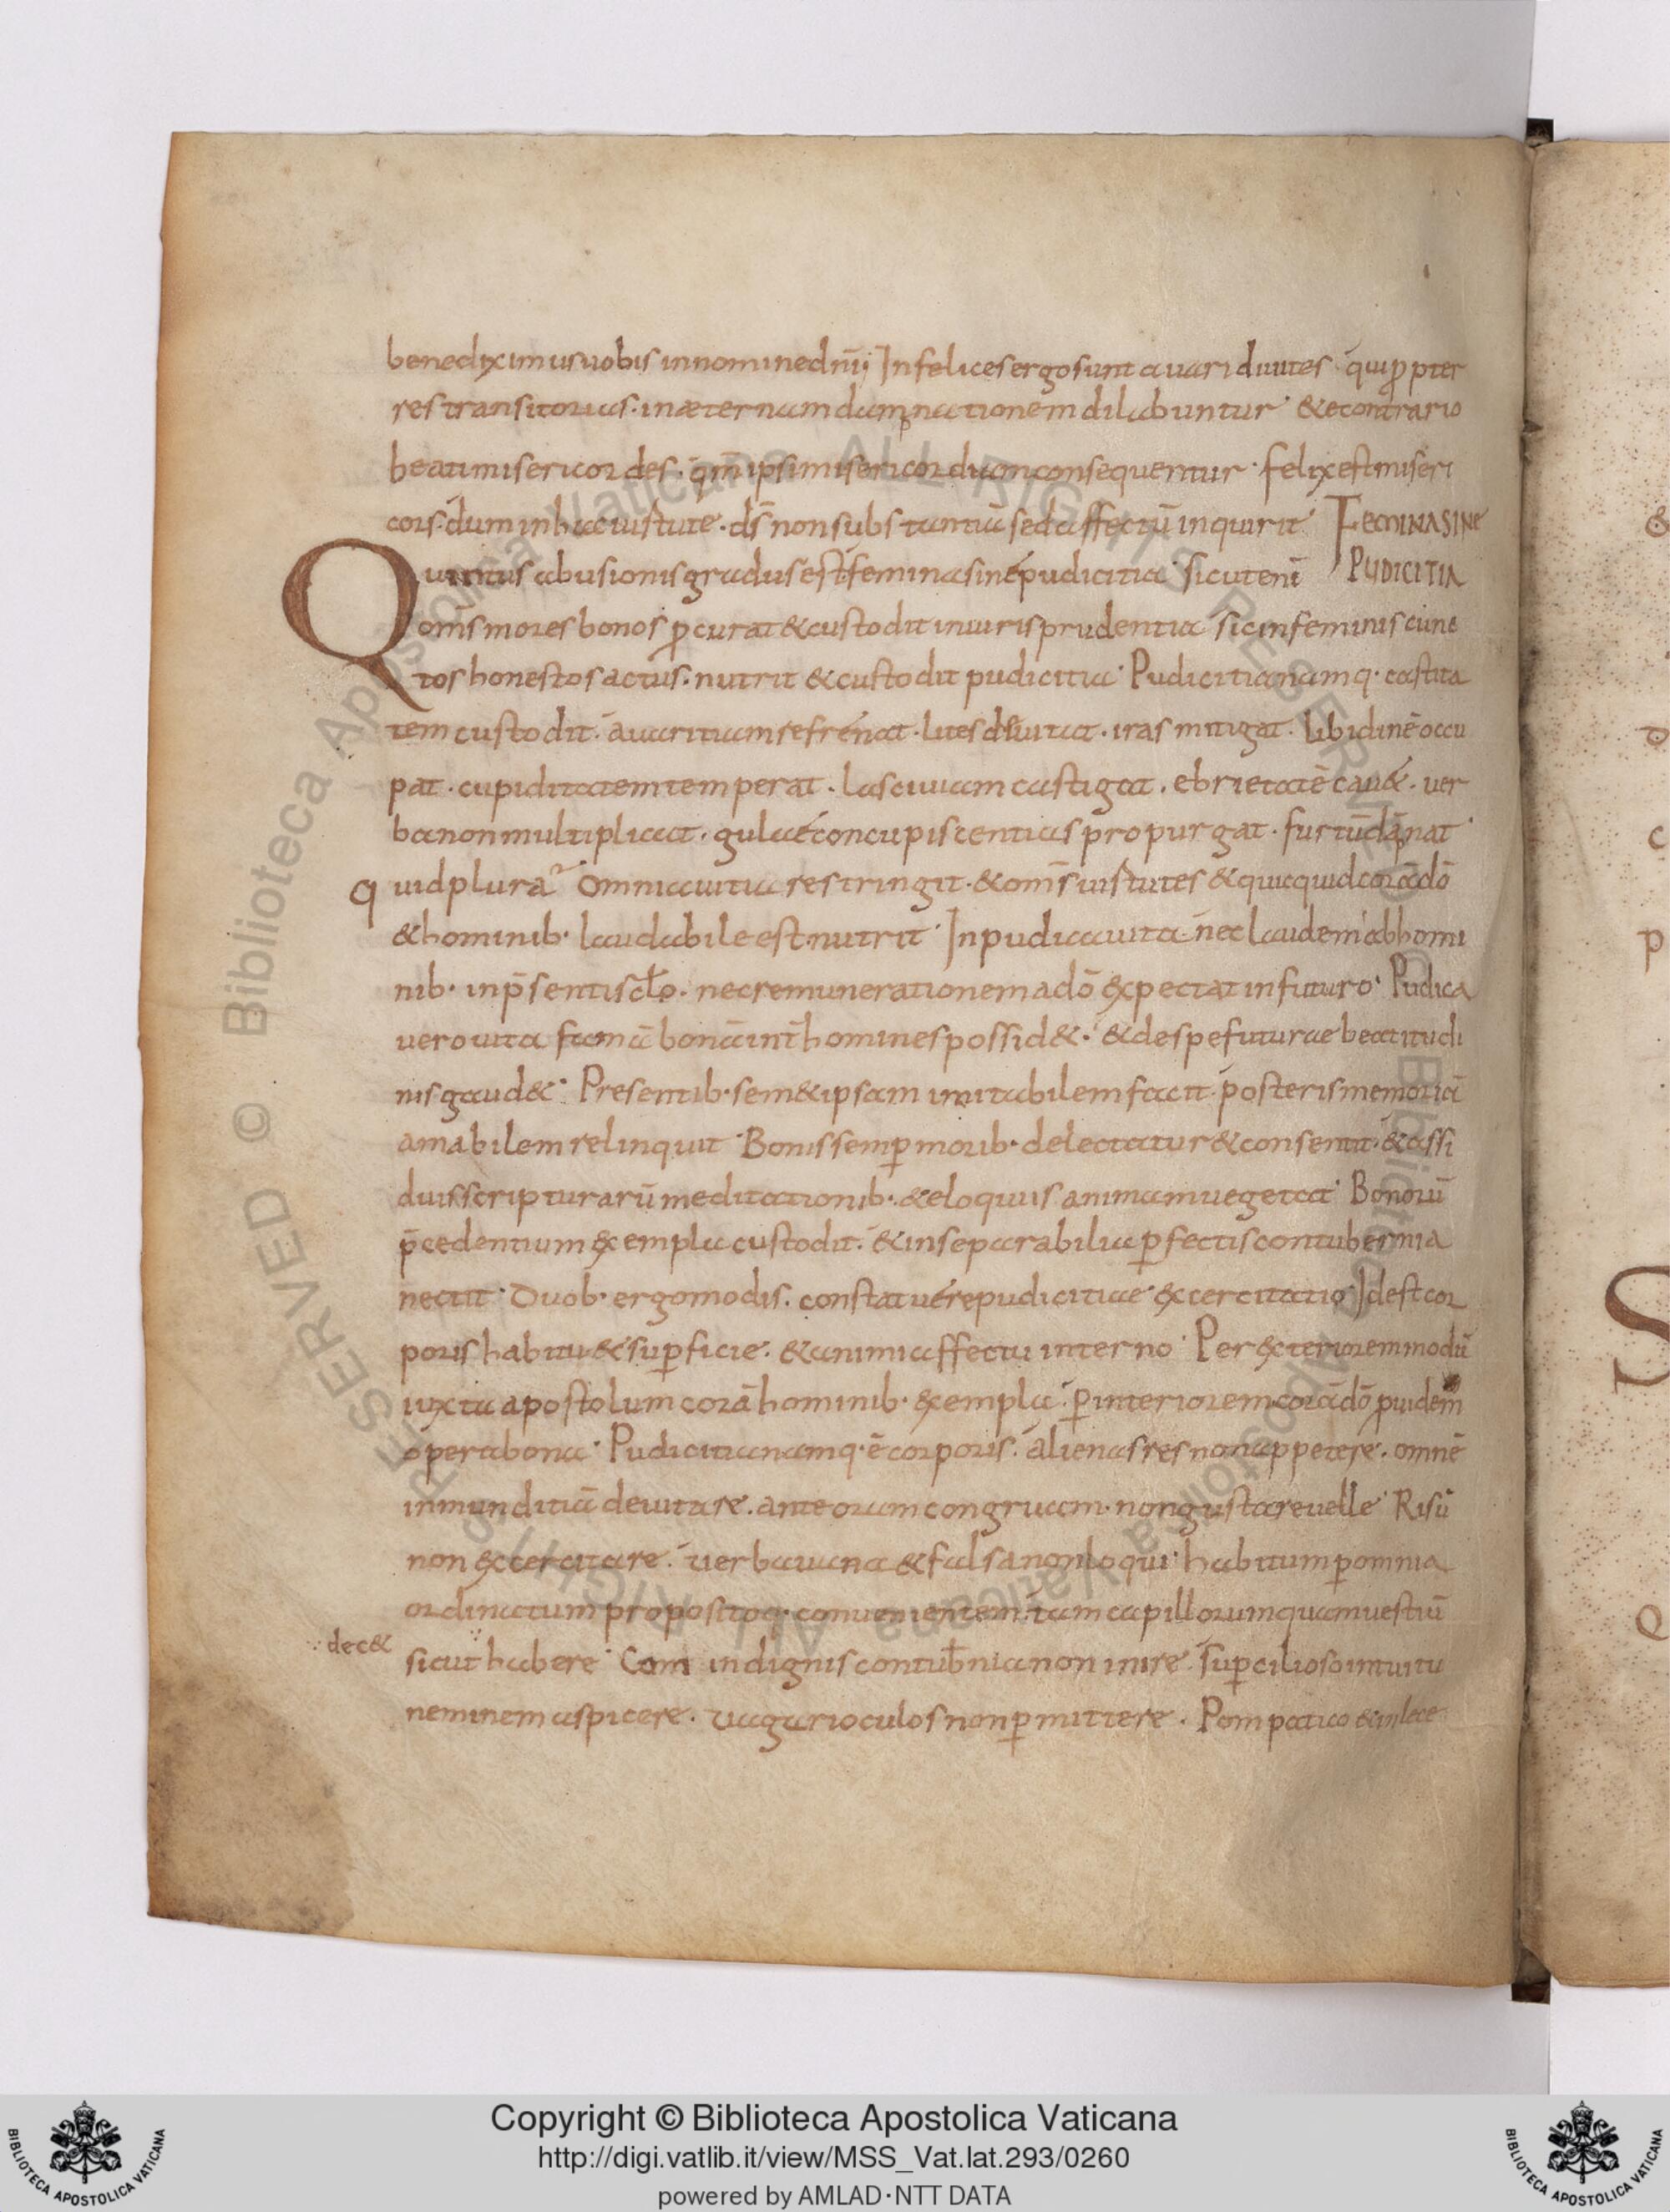 benediximus uobis in nomine dn̄i; Infelices ergo sunt auari diuites · qui ꝓpter
res transitorias · in æternam dampnationem dilabuntur · & econtrario
beati misericordes · qm̄ ipsi misericordiam consequentur · felix est miseri
cors · dum in hac uirtute · ds̄ non substantiā sed affectū inquirit FEMINA SINE
Quintus abusionis gradus est · femina sine pudicitia · sicut enī PUDICITIA
om̄s mores bonos ꝓcurat & custodit in uiris prudentia · sic in feminis cunc
tos honestos actus · nutrit & custodit pudicitia · Pudicitia namq · castita
tem custodit · auaritiam refrenat · lites deuitat · iras mitigat · libidinē occu
pat · cupiditatem temperat · lasciuiam castigat · ebrietatē cau& · ver
ba non multiplicat · gulae concupiscentias propurgat · furtū dāpnat ·
quid plura? Omnia uitia restringit · & om̄s uirtutes & quicquid corā dō
& hominib · laudabile est · nutrit · Inpudica uita · nec laudem ab homi
nib · in p̄senti scl̄o · nec remunerationem a dō expectat in futuro · Pudica
uero uita famā bonā int̄ homines possid& · & de spe futurae beatitudi
nis gaud& · Presentib · sem&ipsam imitabilem facit · posteris memoriā
amabilem relinquit · Bonis semꝑ morib · delectatur & consentit · & assi
duis scripturarū meditationib · & eloquiis animam uegetat · Bonorū
p̄cedentium exempla custodit · & inseparabilia ꝑfectis contubernia
nectit · Duob · ergo modis · constat uere pudicitiae excercitatio · Id est cor
poris habitu & suꝑficie · & animi affectu interno · Per exteriorem modū
iuxta apostolum corā hominib · exempla · ꝑ interiorem corā dō ꝓuidem
opera bona · Pudicitia namq · ē corporis · alienas res non appetere · omnē
inmunditiā deuitare · ante oram congruam · non gustare uelle · Risū
non excercitare · uerba uana & falsa non loqui · habitum ꝑ omnia
ordinatum propositoq · conuenientem · tam capillorum quam uestiū
dec&
sicut habere · Com indignis contub̄nia non inire · Suꝑcilioso intuitu
neminem aspicere · uagari oculos non ꝑmittere · Pompatico & inlece
Copyright © Biblioteca Apostolica Vaticana
http://digi.vatlib.it/view/MSS_Vat.lat.293/0260
powered by AMLAD·NTT DATA